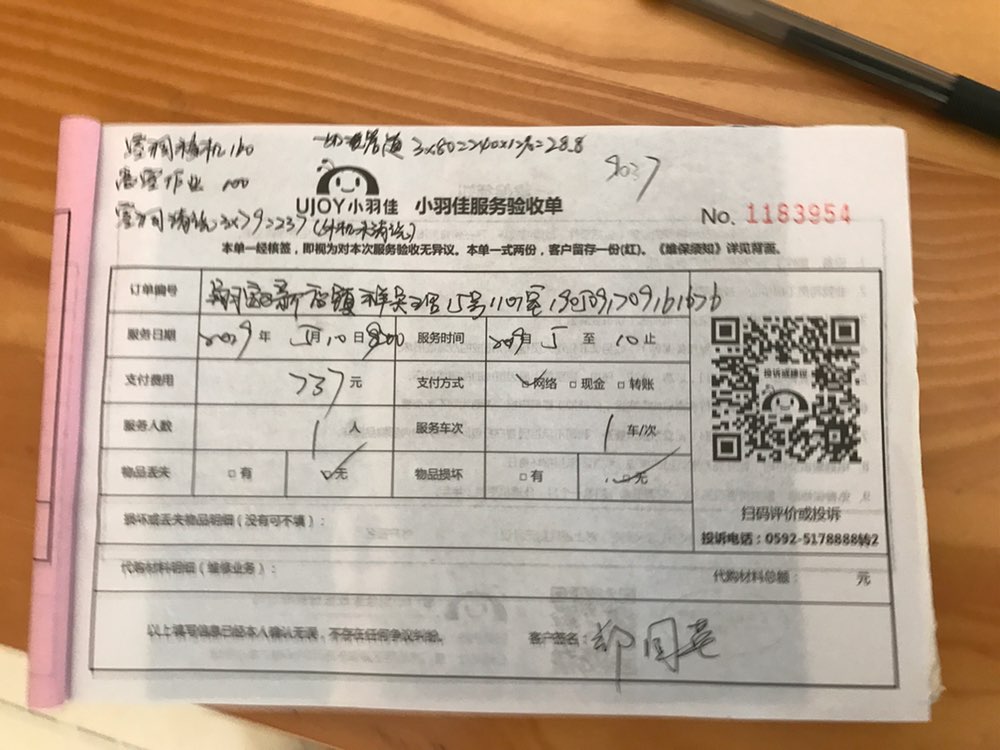 空调移机160
3×80=240×12%=28.8
高空作业 100
9037
UJOY小羽佳 小羽佳服务验收单
No. 1183954
空调清洗3×79=237(外机未清洗)
本单一经核签，即视为对本次服务验收无异议。本单一式两份，客户留存一份(红)。《维保须知》详见背面。
订单编号
服务日期 年 5月10日 服务时间 月 5 至 10止
支付费用 737元 支付方式 网络 现金 转账
投诉或建议
服务人数 1人 服务车次 1车/次
物品丢失 有 无 物品损坏 有 无
扫码评价或投诉
损坏或丢失物品明细（没有可不填）：
投诉电话：0592-5178888转2
代购材料明细（维修业务）： 代购材料总额： 元
以上填写信息已经本人确认无误，不存在任何争议纠纷。 客户签名：